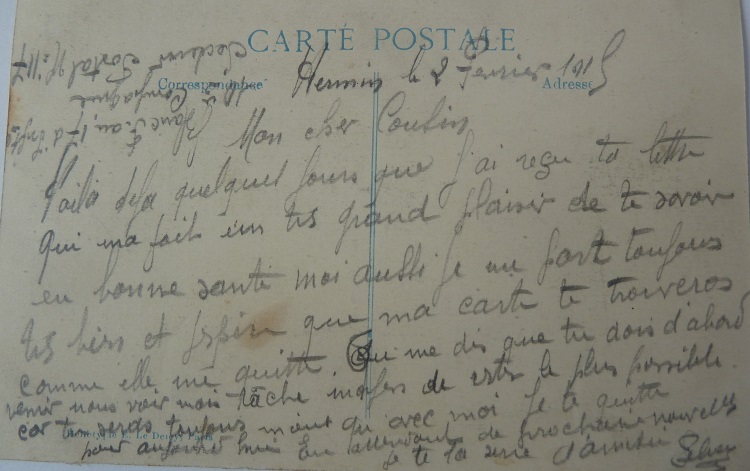 CARTE POSTALE
Correspondance Adresse
Hermin le 2 Fevrier 1915
Mon cher Cousin
Voila deja quelques jours que j'ai reçu ta lettre
qui ma fait un tres grand plaisir de te savoir
en bonne santé moi aussi je me port toujours
tres bien et espère que ma carte te trouveras
comme elle me quitte. Tu me dis que tu dois d'abord
venir nous voir mais tâche de rester le plus possible
car tu seras toujours mieux qu avec moi Je te quitte
pour aujourd hui En attendant de prochaine nouvelles
Je te la serre d'amitié
Secteur Postal N° 117
Compagnie
17 d'Inf